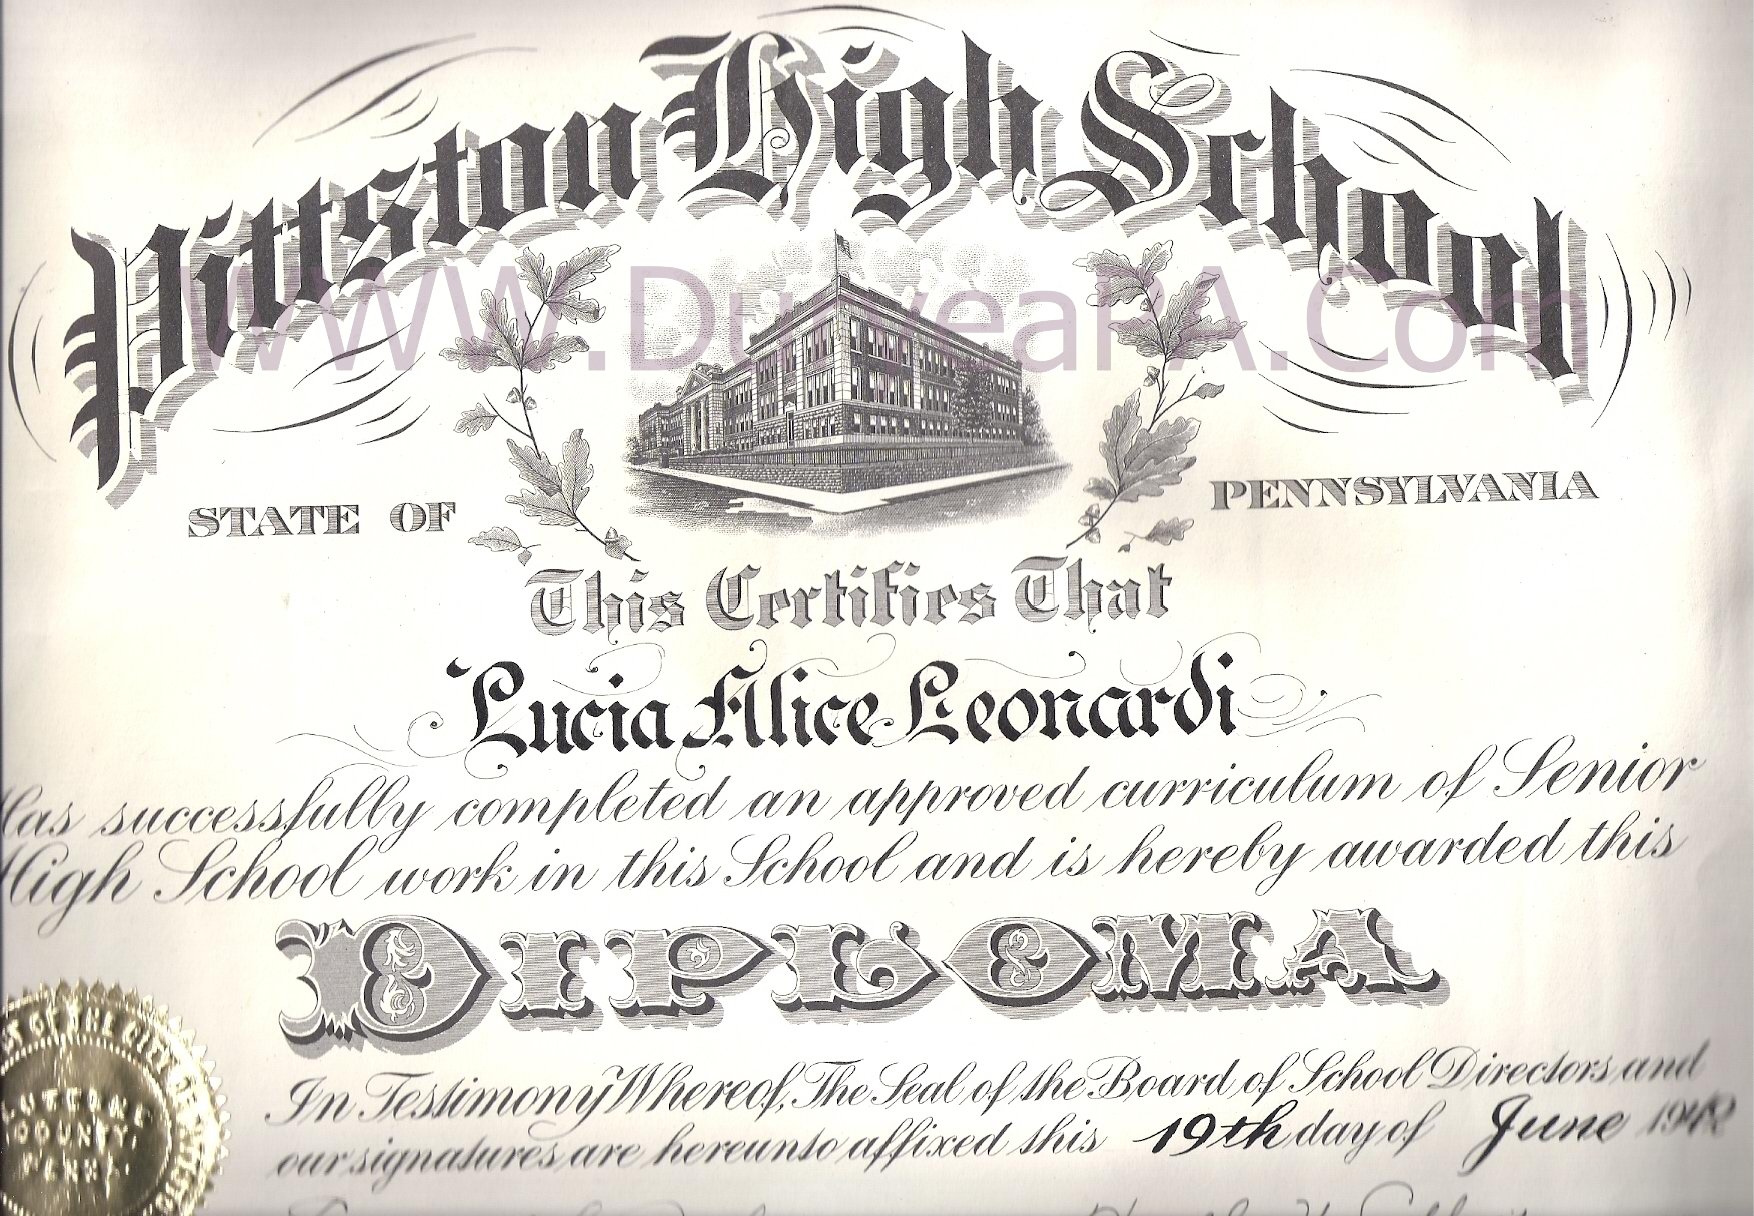 Pittston High School
WWW.DuryeaPA.Com
STATE OF PENNSYLVANIA
This Certifies That
Lucia Alice Leonardi
has successfully completed an approved curriculum of Senior
High School work in this School and is hereby awarded this
DIPLOMA
In Testimony Whereof, The Seal of the Board of School Directors and
our signatures are hereunto affixed this 19th day of June
OF THE CITY
LUZERNE
COUNTY,
PENNA.